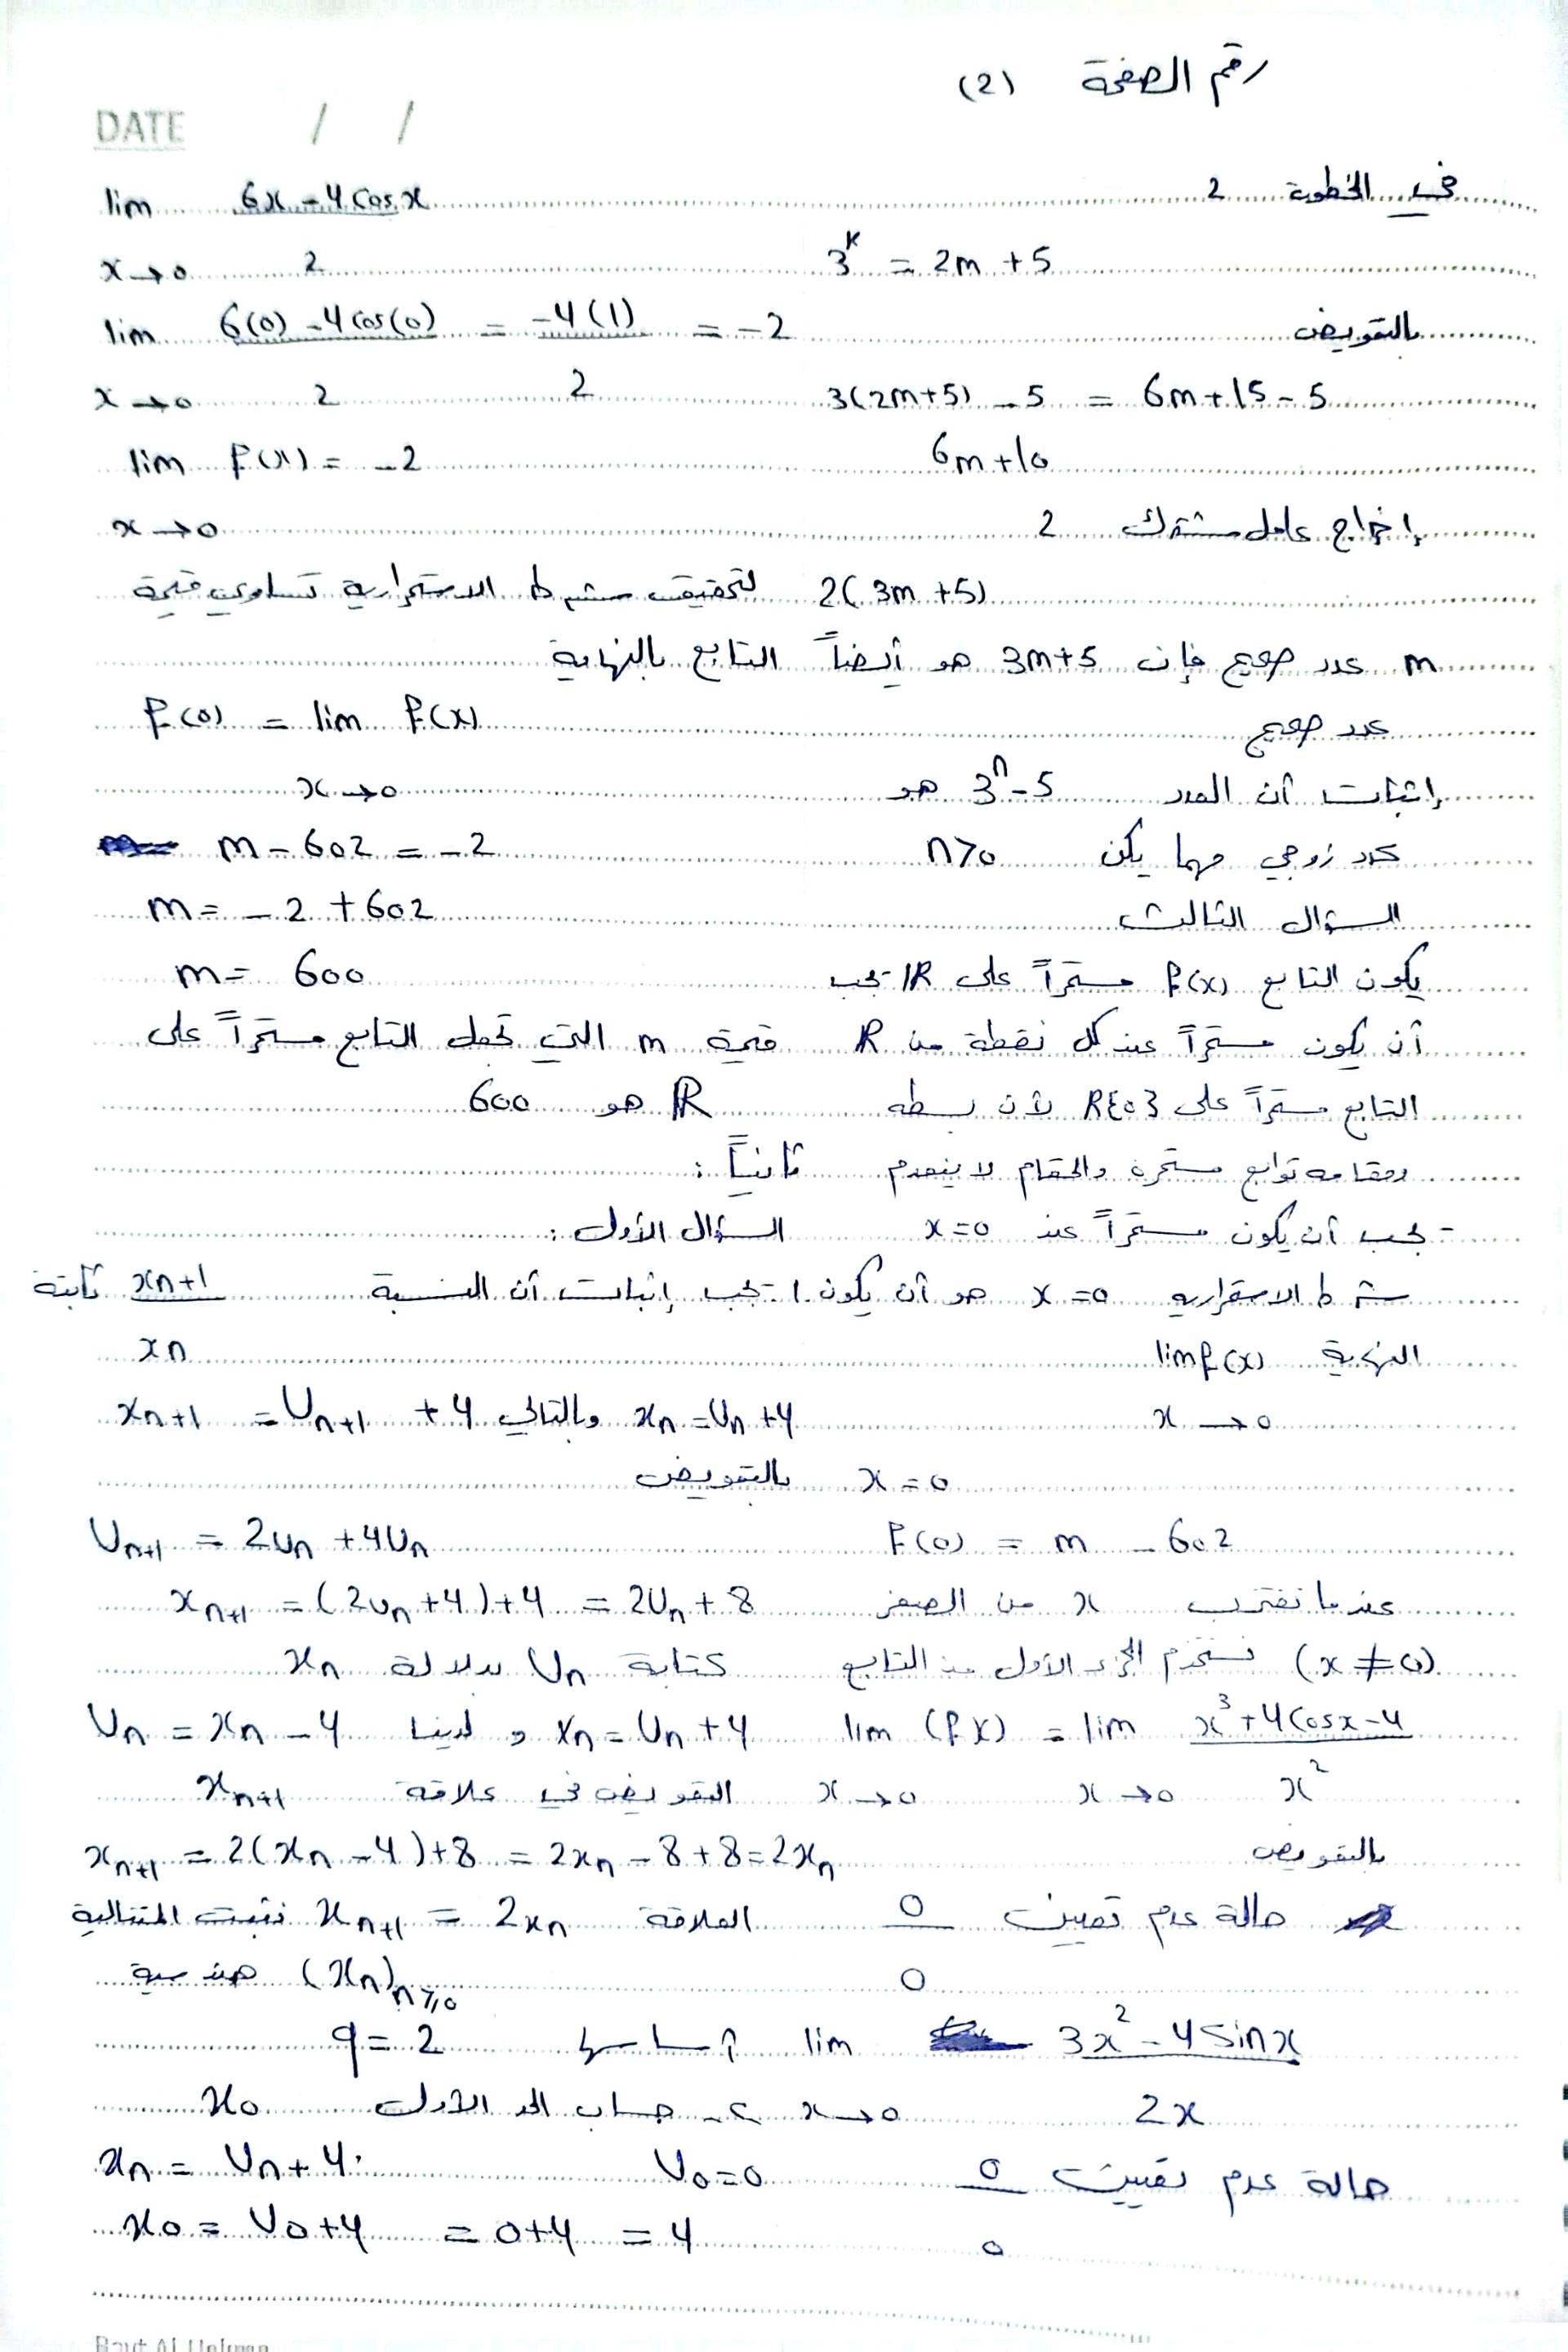 رقم الصفحة (2)
DATE / /
في الخطوة 2
3^k = 2m + 5
بالتعويض
3(2m+5) - 5 = 6m + 15 - 5
6m + 10
إخراج عامل مشترك 2
2(3m + 5)
m عدد صحيح فإن 3m+5 هو أيضاً
عدد صحيح
إثبات أن العدد 3^n - 5 هو
عدد زوجي مهما يكن n>0
السؤال الثالث
يكون التابع f(x) مستمراً على IR يجب
أن يكون مستمراً عند كل نقطة من R
التابع مستمراً على R{0} لأن بسطه
ومقامه توابع مستمرة والمقام لا ينعدم
- يجب أن يكون مستمراً عند x=0
شرط الاستقرارية x=0 هو أن يكون
النهاية lim f(x)
x → 0
x = 0
f(0) = m - 602
عندما تقترب x من الصفر
(x ≠ 0) نستخدم الجزء الأول من التابع
lim (f x) = lim x^3 + 4cosx - 4
x → 0 x → 0 x^2
بالتعويض
حالة عدم تعيين 0
0
lim 3x^2 - 4 sinx
x → 0 2x
حالة عدم تعيين 0
0
lim 6x - 4 cosx
x → 0 2
lim 6(0) - 4cos(0) = -4(1) = -2
x → 0 2 2
lim f(x) = -2
x → 0
لتحقيق شرط الاستمرارية تساوي قيمة
التابع بالنهاية
f(0) = lim f(x)
x → 0
m - 602 = -2
m = -2 + 602
m = 600
قيمة m التي تجعل التابع مستمراً على
R هو 600
ثانياً :
السؤال الأول :
1- يجب إثبات أن النسبة xn+1 ثابتة
xn
xn = Un + 4 وبالتالي xn+1 = Un+1 + 4
بالتعويض
Un+1 = 2Un + 4Un
xn+1 = (2Un + 4) + 4 = 2Un + 8
كتابة Un بدلالة xn
لدينا xn = Un + 4 و Un = xn - 4
التعويض في علاقة xn+1
xn+1 = 2(xn - 4) + 8 = 2xn - 8 + 8 = 2xn
العلاقة xn+1 = 2xn نثبت المتتالية
(xn)n≥0 هندسية
أساسها q = 2
2- حساب الحد الأول x0
U0 = 0 xn = Un + 4
x0 = U0 + 4 = 0 + 4 = 4